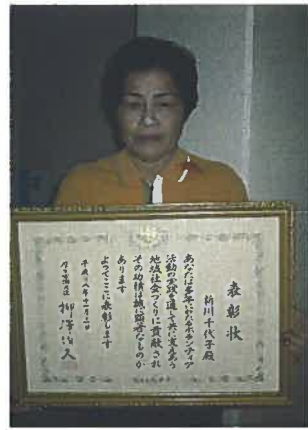 表彰状
新川千代子殿
あなたは多年にわたるボランティア
活動の実践を通して共に支えあう
地域社会づくりに貢献され
その功績は誠に顕著なものが
あります
よってここに表彰します
平成十八年十一月